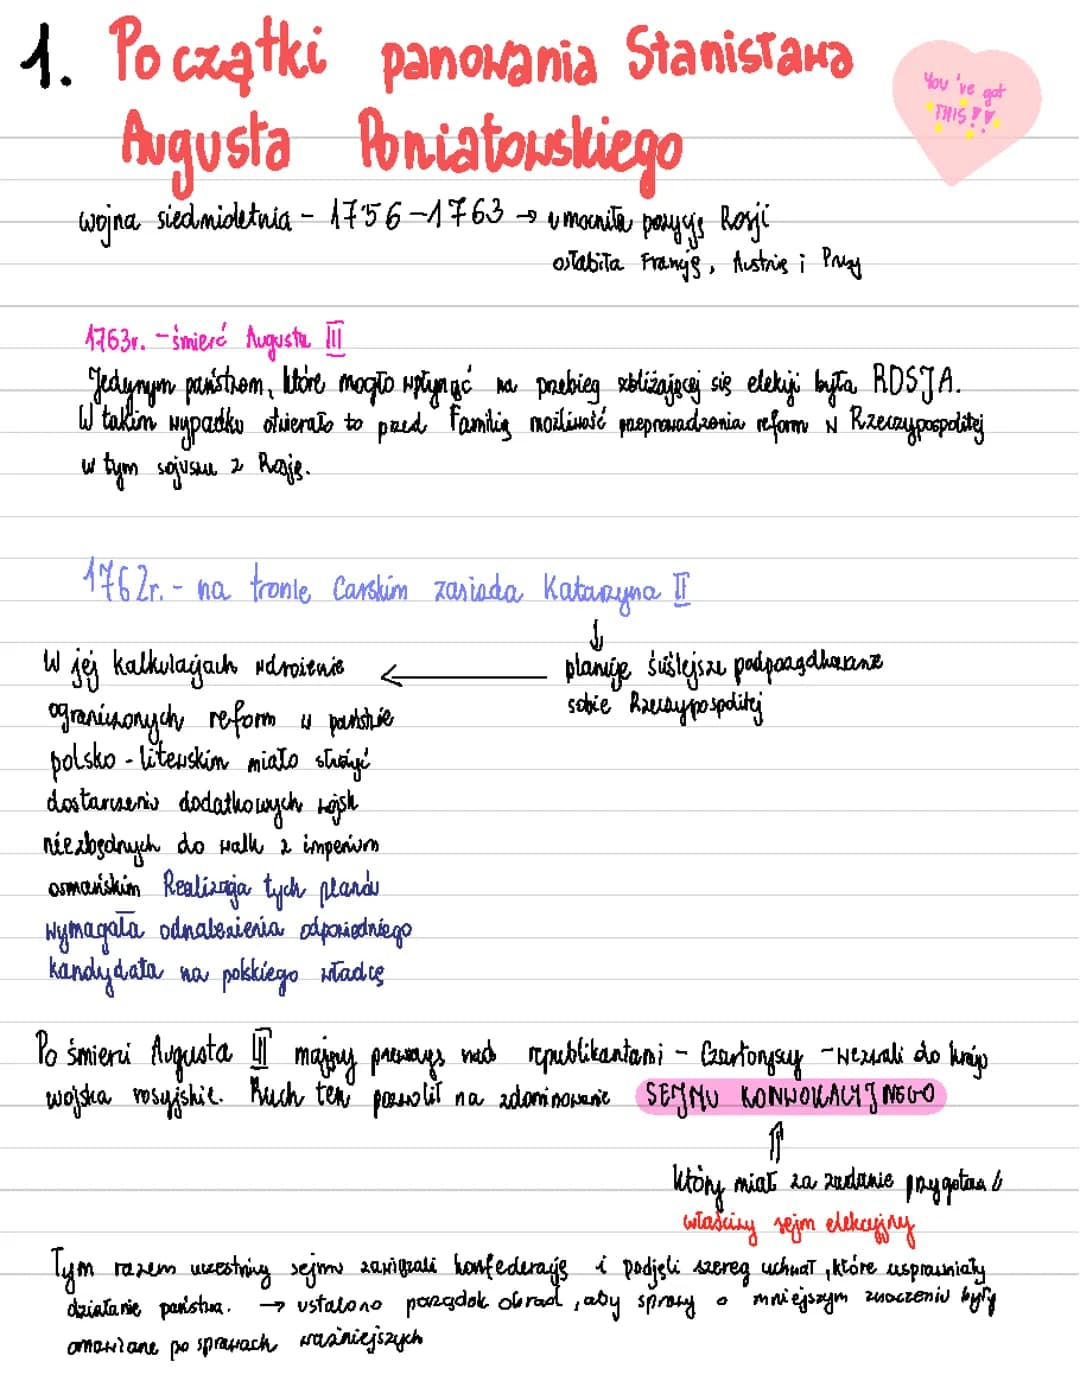 1. Początki panowania Stanisława
Augusta Poniatowskiego
You've got
THIS!!
wojna siedmioletnia - 1756-1763 → umocniła pozycję Rosji
osłabiła Francję, Austrię i Prusy
1763r. - śmierć Augusta III
Jedynym państwem, które mogło wpłynąć na przebieg zbliżającej się elekcji była ROSJA.
W takim wypadku otwierało to przed Familią możliwość przeprowadzenia reform w Rzeczypospolitej
w tym sojuszu z Rosją.
1762r. - na tronie Carskim zasiada Katarzyna II
↓
planuje ściślejsze podporządkowanie
sobie Rzeczypospolitej
←
W jej kalkulacjach wdrożenie
ograniczonych reform w państwie
polsko - litewskim miało służyć
dostarczeniu dodatkowych wojsk
niezbędnych do walk z imperium
osmańskim Realizacja tych planów
wymagała odnalezienia odpowiedniego
kandydata na polskiego władcę
Po śmierci Augusta III mający przewagę nad republikantami - Czartoryscy - wezwali do kraju
wojska rosyjskie. Ruch ten pozwolił na zdominowanie SEJMU KONWOKACYJNEGO
⇑
który miał za zadanie przygotować
właściwy sejm elekcyjny
Tym razem uczestnicy sejmu zawiązali konfederację i podjęli szereg uchwał, które usprawniały
działanie państwa. → ustalono porządek obrad, aby sprawy o mniejszym znaczeniu były
omawiane po sprawach ważniejszych